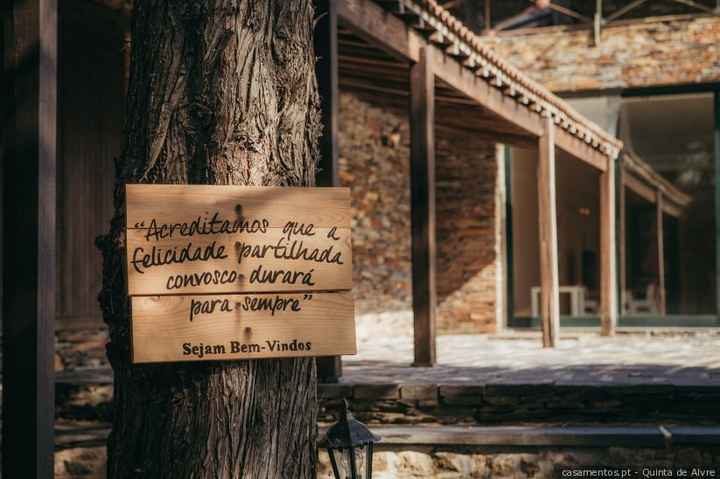 “Acreditamos que a
felicidade partilhada
convosco durará
para sempre”
Sejam Bem-Vindos
casamentos.pt - Quinta de Alvre